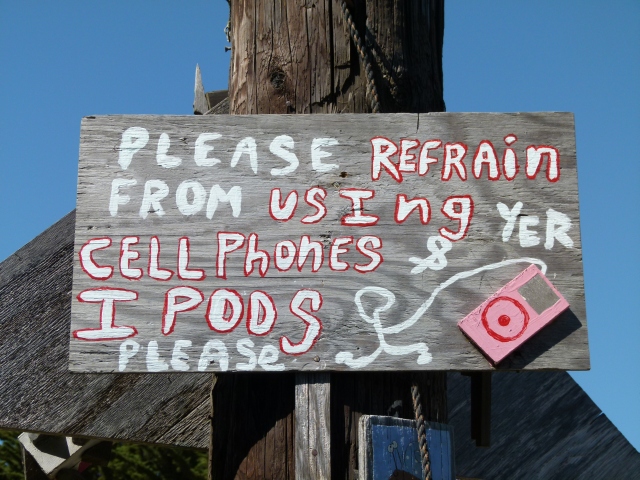 PLEASE REFRAIN
FROM USING YER
CELLPHONES &
I PODS
PLEASE